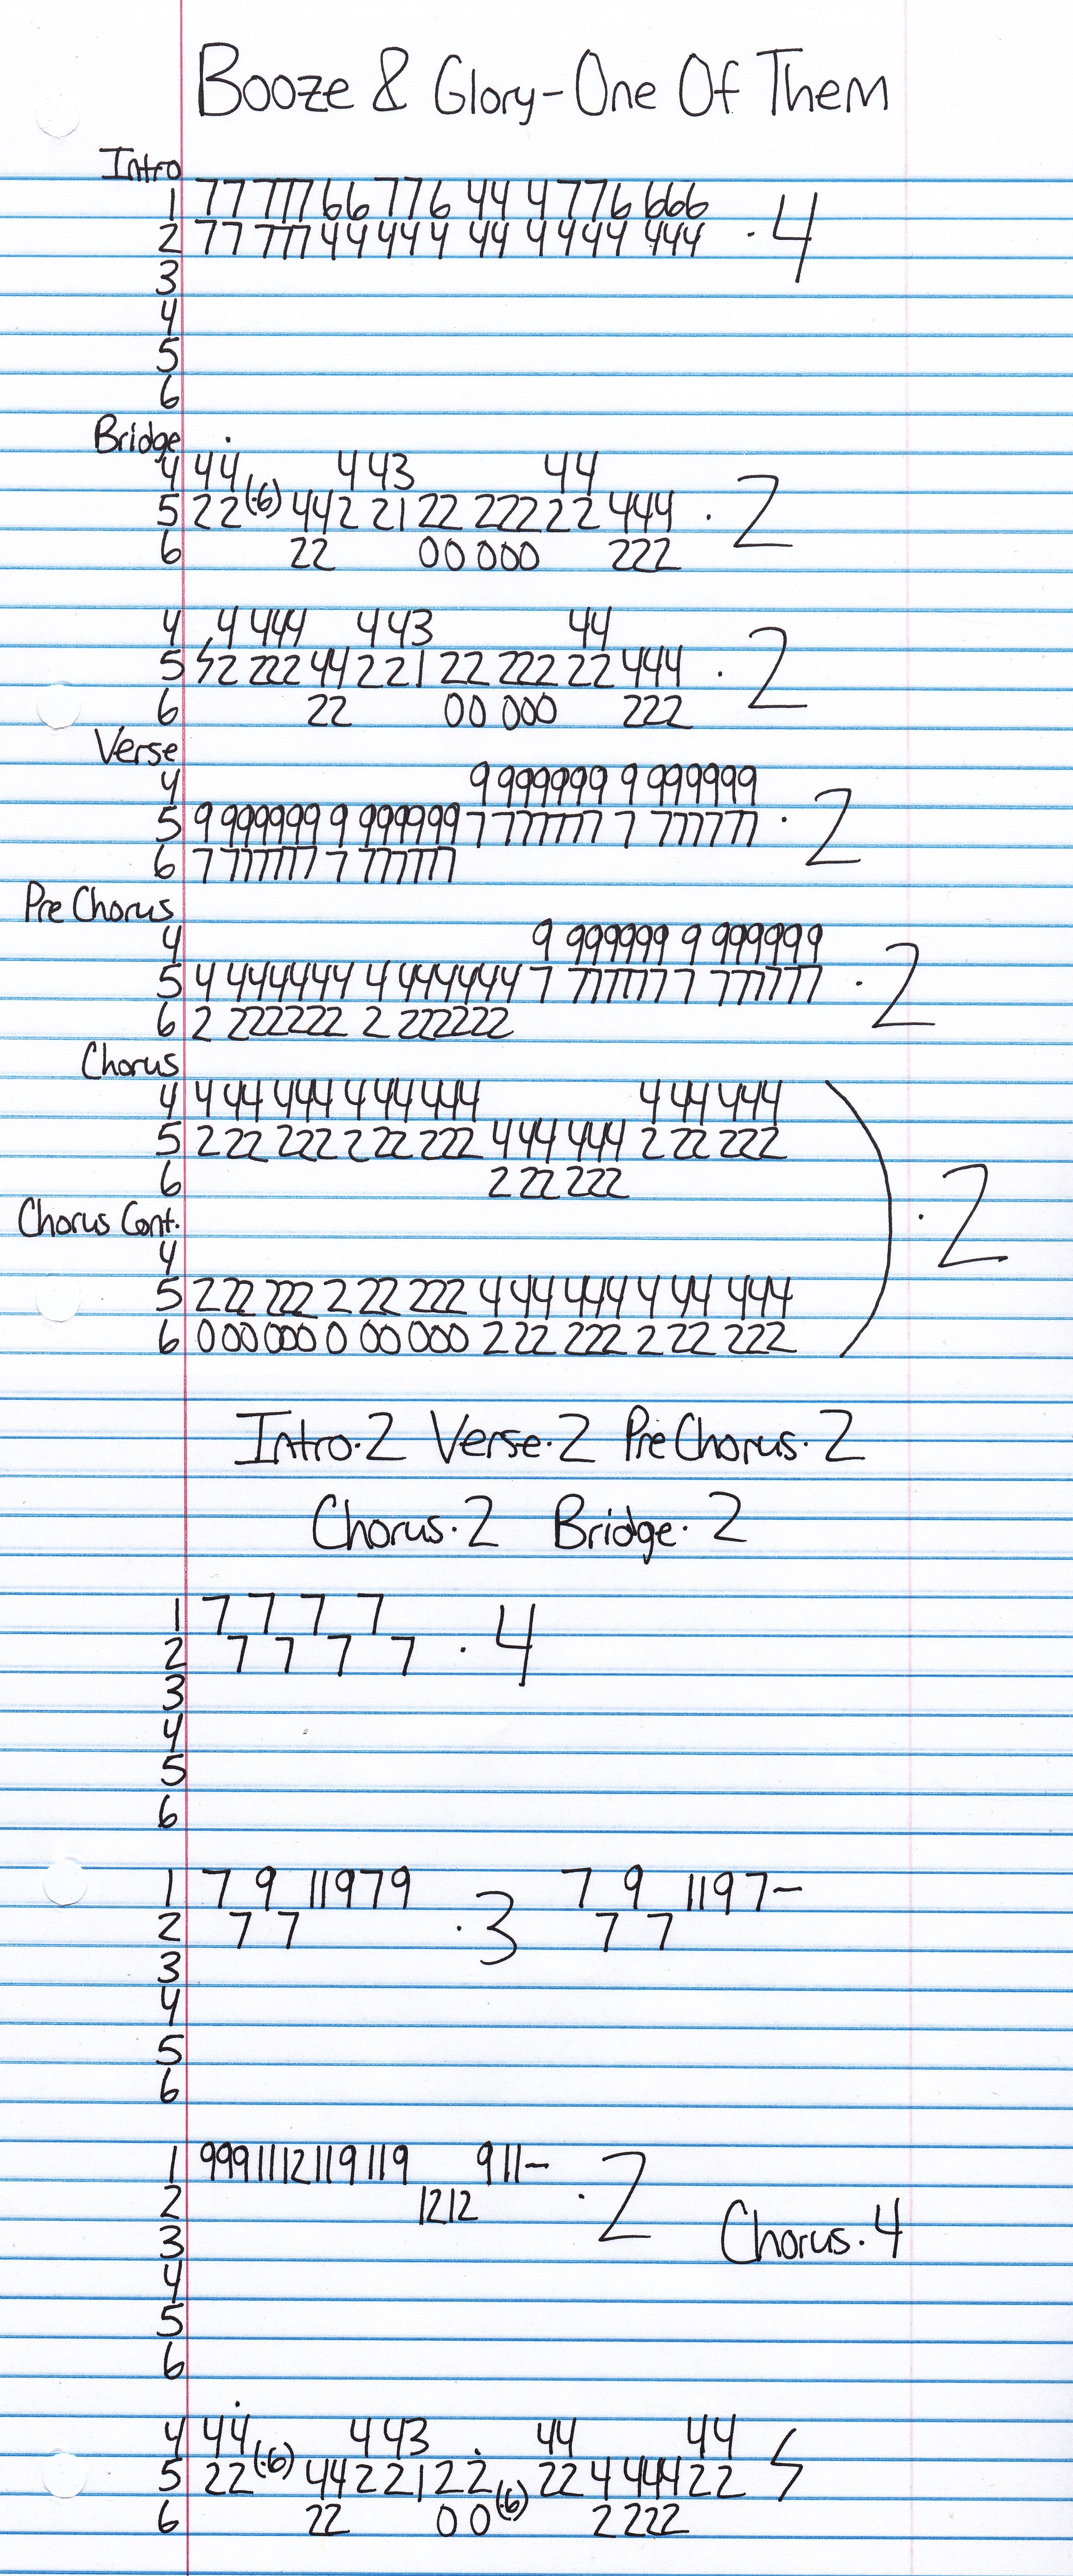 Booze & Glory-One Of Them
Intro
1 77 777 66 776 44 4 776 666
2 77 777 44 444 44 4 444 444 ·4
3
4
5
6
Bridge
4 44 4 43 44
5 22(·6) 442 21 22 222 22 444 ·2
6 22 00 000 222
4 4 444 4 43 44
5 2 222 44 2 21 22 222 22 444 ·2
6 22 00 000 222
Verse
4 9 999999 9 999999
5 9 999999 9 999999 7 777777 7 777777 ·2
6 7 777777 7 777777
Pre Chorus
4 9 999999 9 999999
5 4 444444 4 444444 7 777777 7 777777 ·2
6 2 222222 2 222222
Chorus
4 4 44 444 4 44 444 4 44 444
5 2 22 222 2 22 222 4 44 444 2 22 222
6 2 22 222
Chorus Cont. ·2
4
5 2 22 222 2 22 222 4 44 444 4 44 444
6 0 00 000 0 00 000 2 22 222 2 22 222
Intro·2 Verse·2 Pre Chorus·2
Chorus·2 Bridge·2
1 7 7 7 7
2 7 7 7 7 ·4
3
4
5
6
1 7 9 11979 7 9 1197-
2 7 7 ·3 7 7
3
4
5
6
1 9991112119119 911-
2 1212 ·2
3 Chorus·4
4
5
6
4 44 4 43 44 44
5 22(·6) 442 21 22 22 4 444 22
6 22 0 0(·6) 2 222